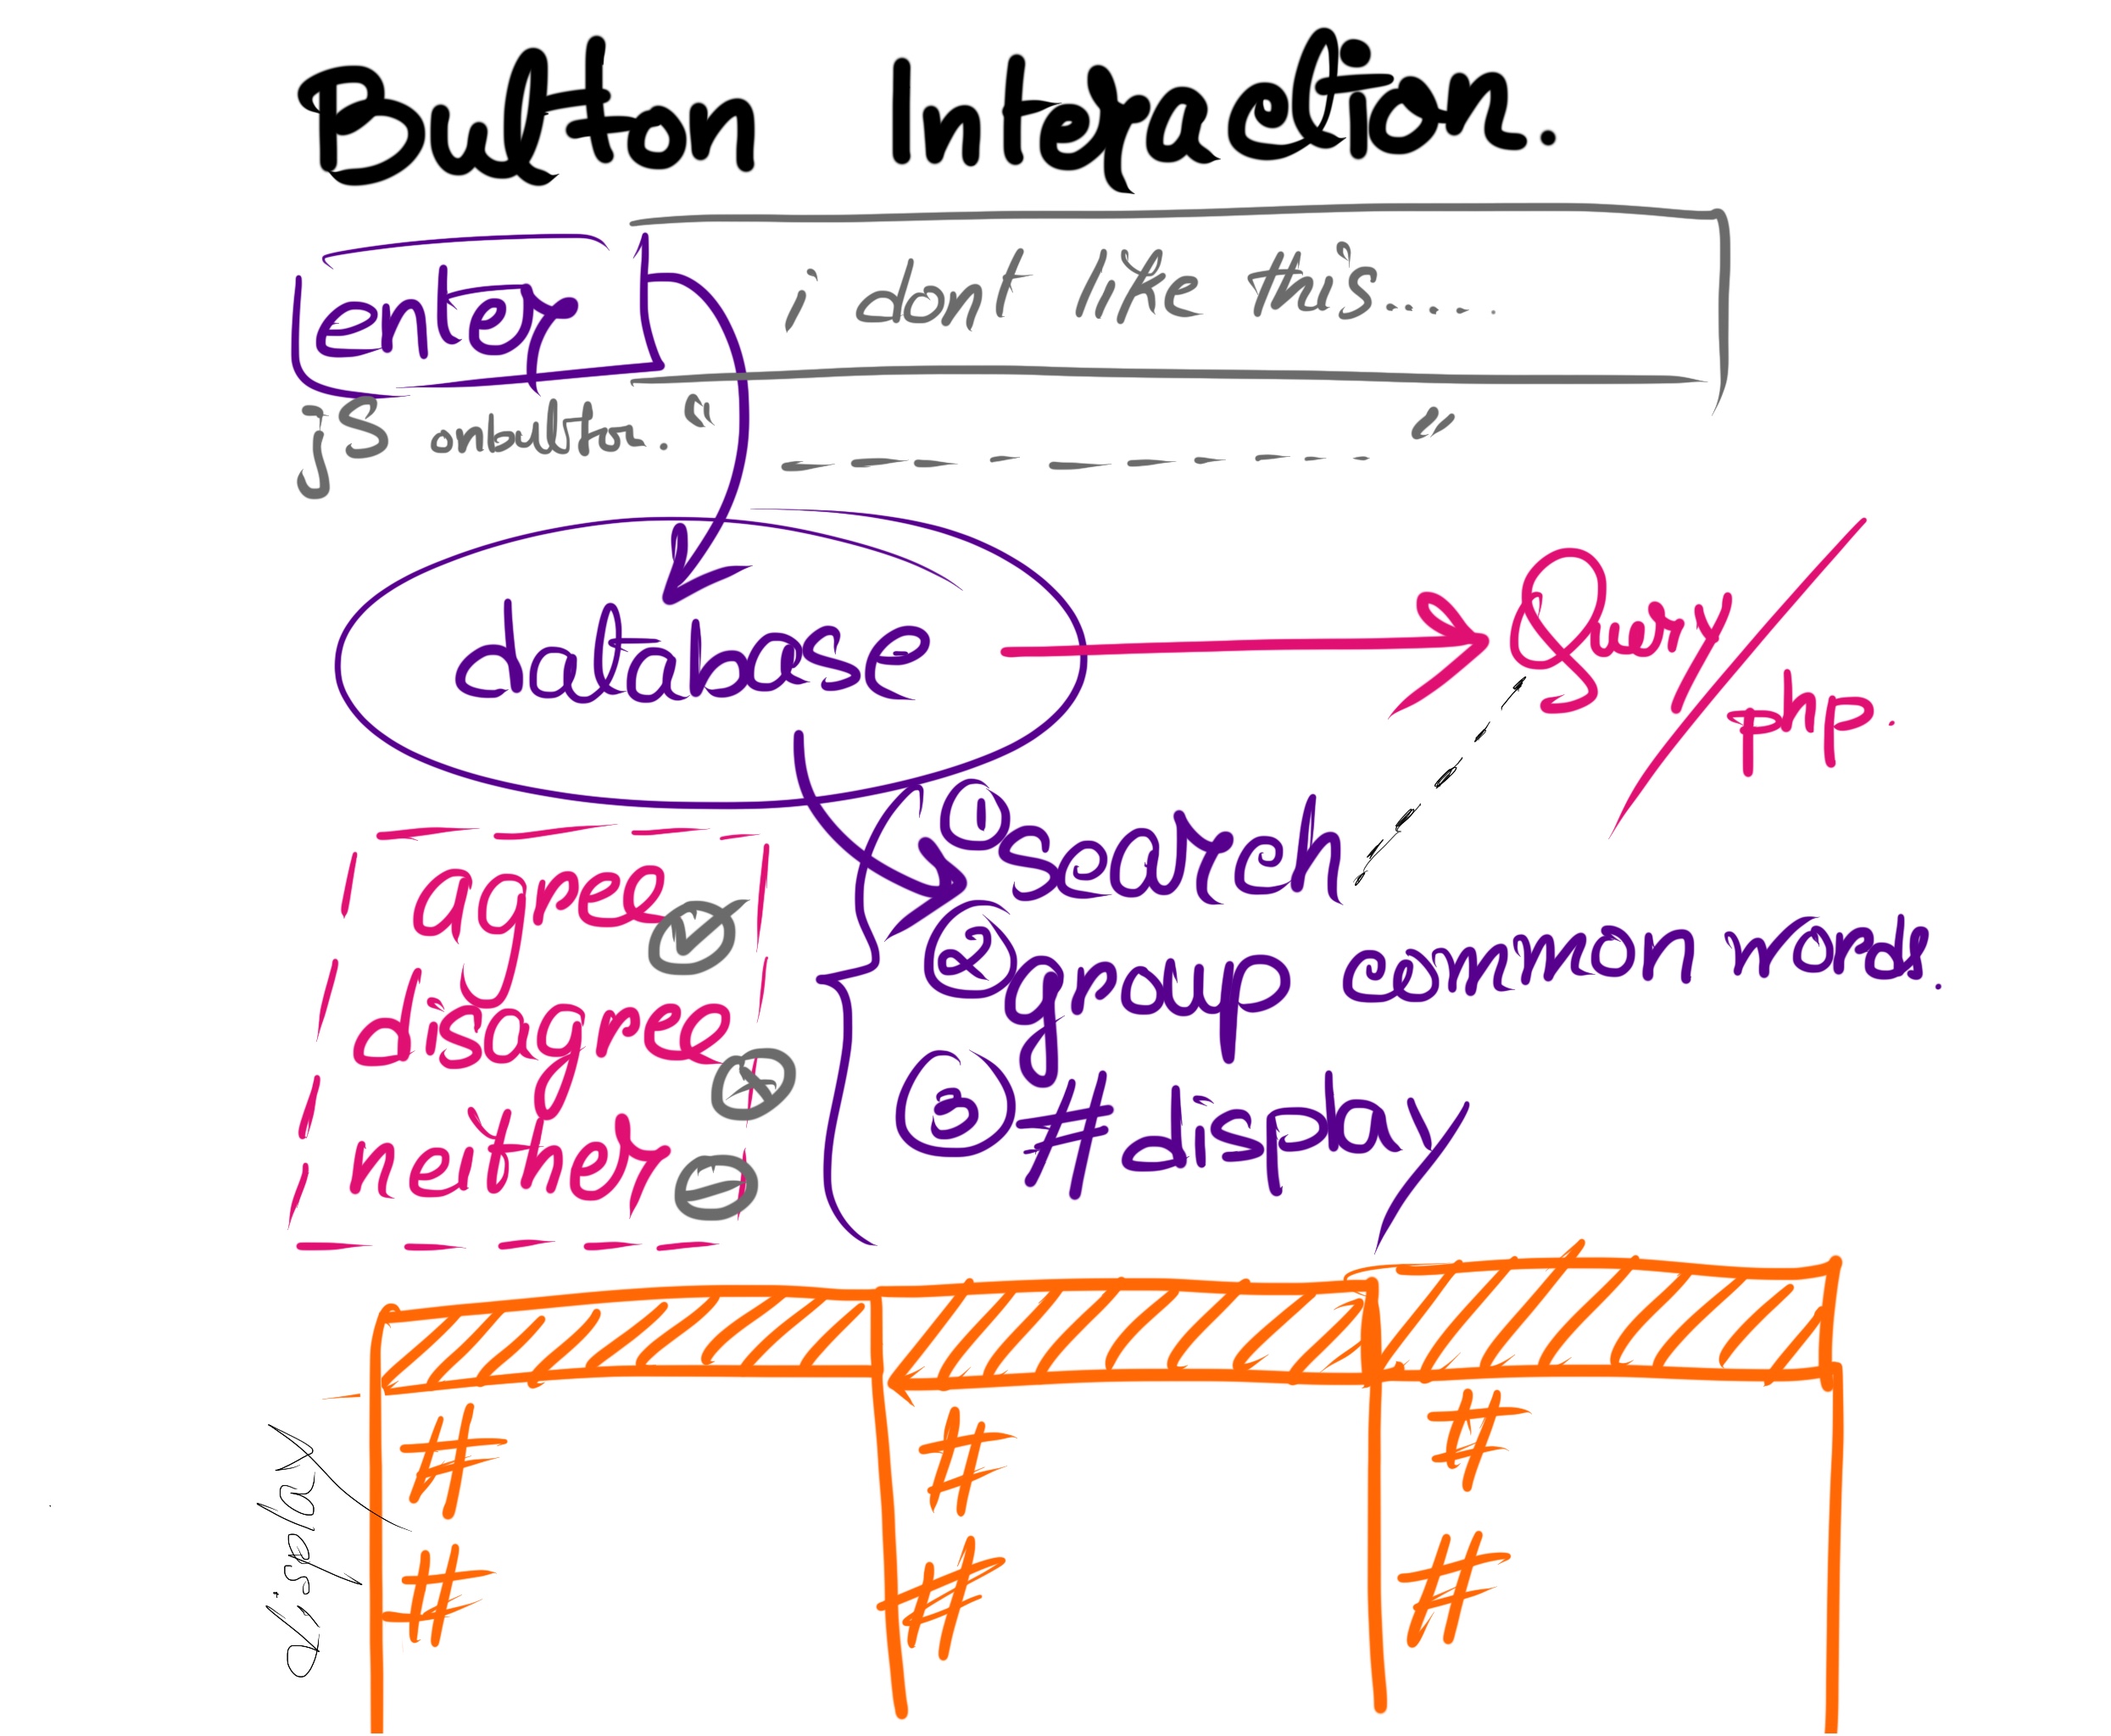 Button Interaction.
enter
i dont like this.....
js onbutton. "
"
database
Query/
php.
① search
② group common words.
③ #display
agree
disagree
neither
# # #
# # #
display